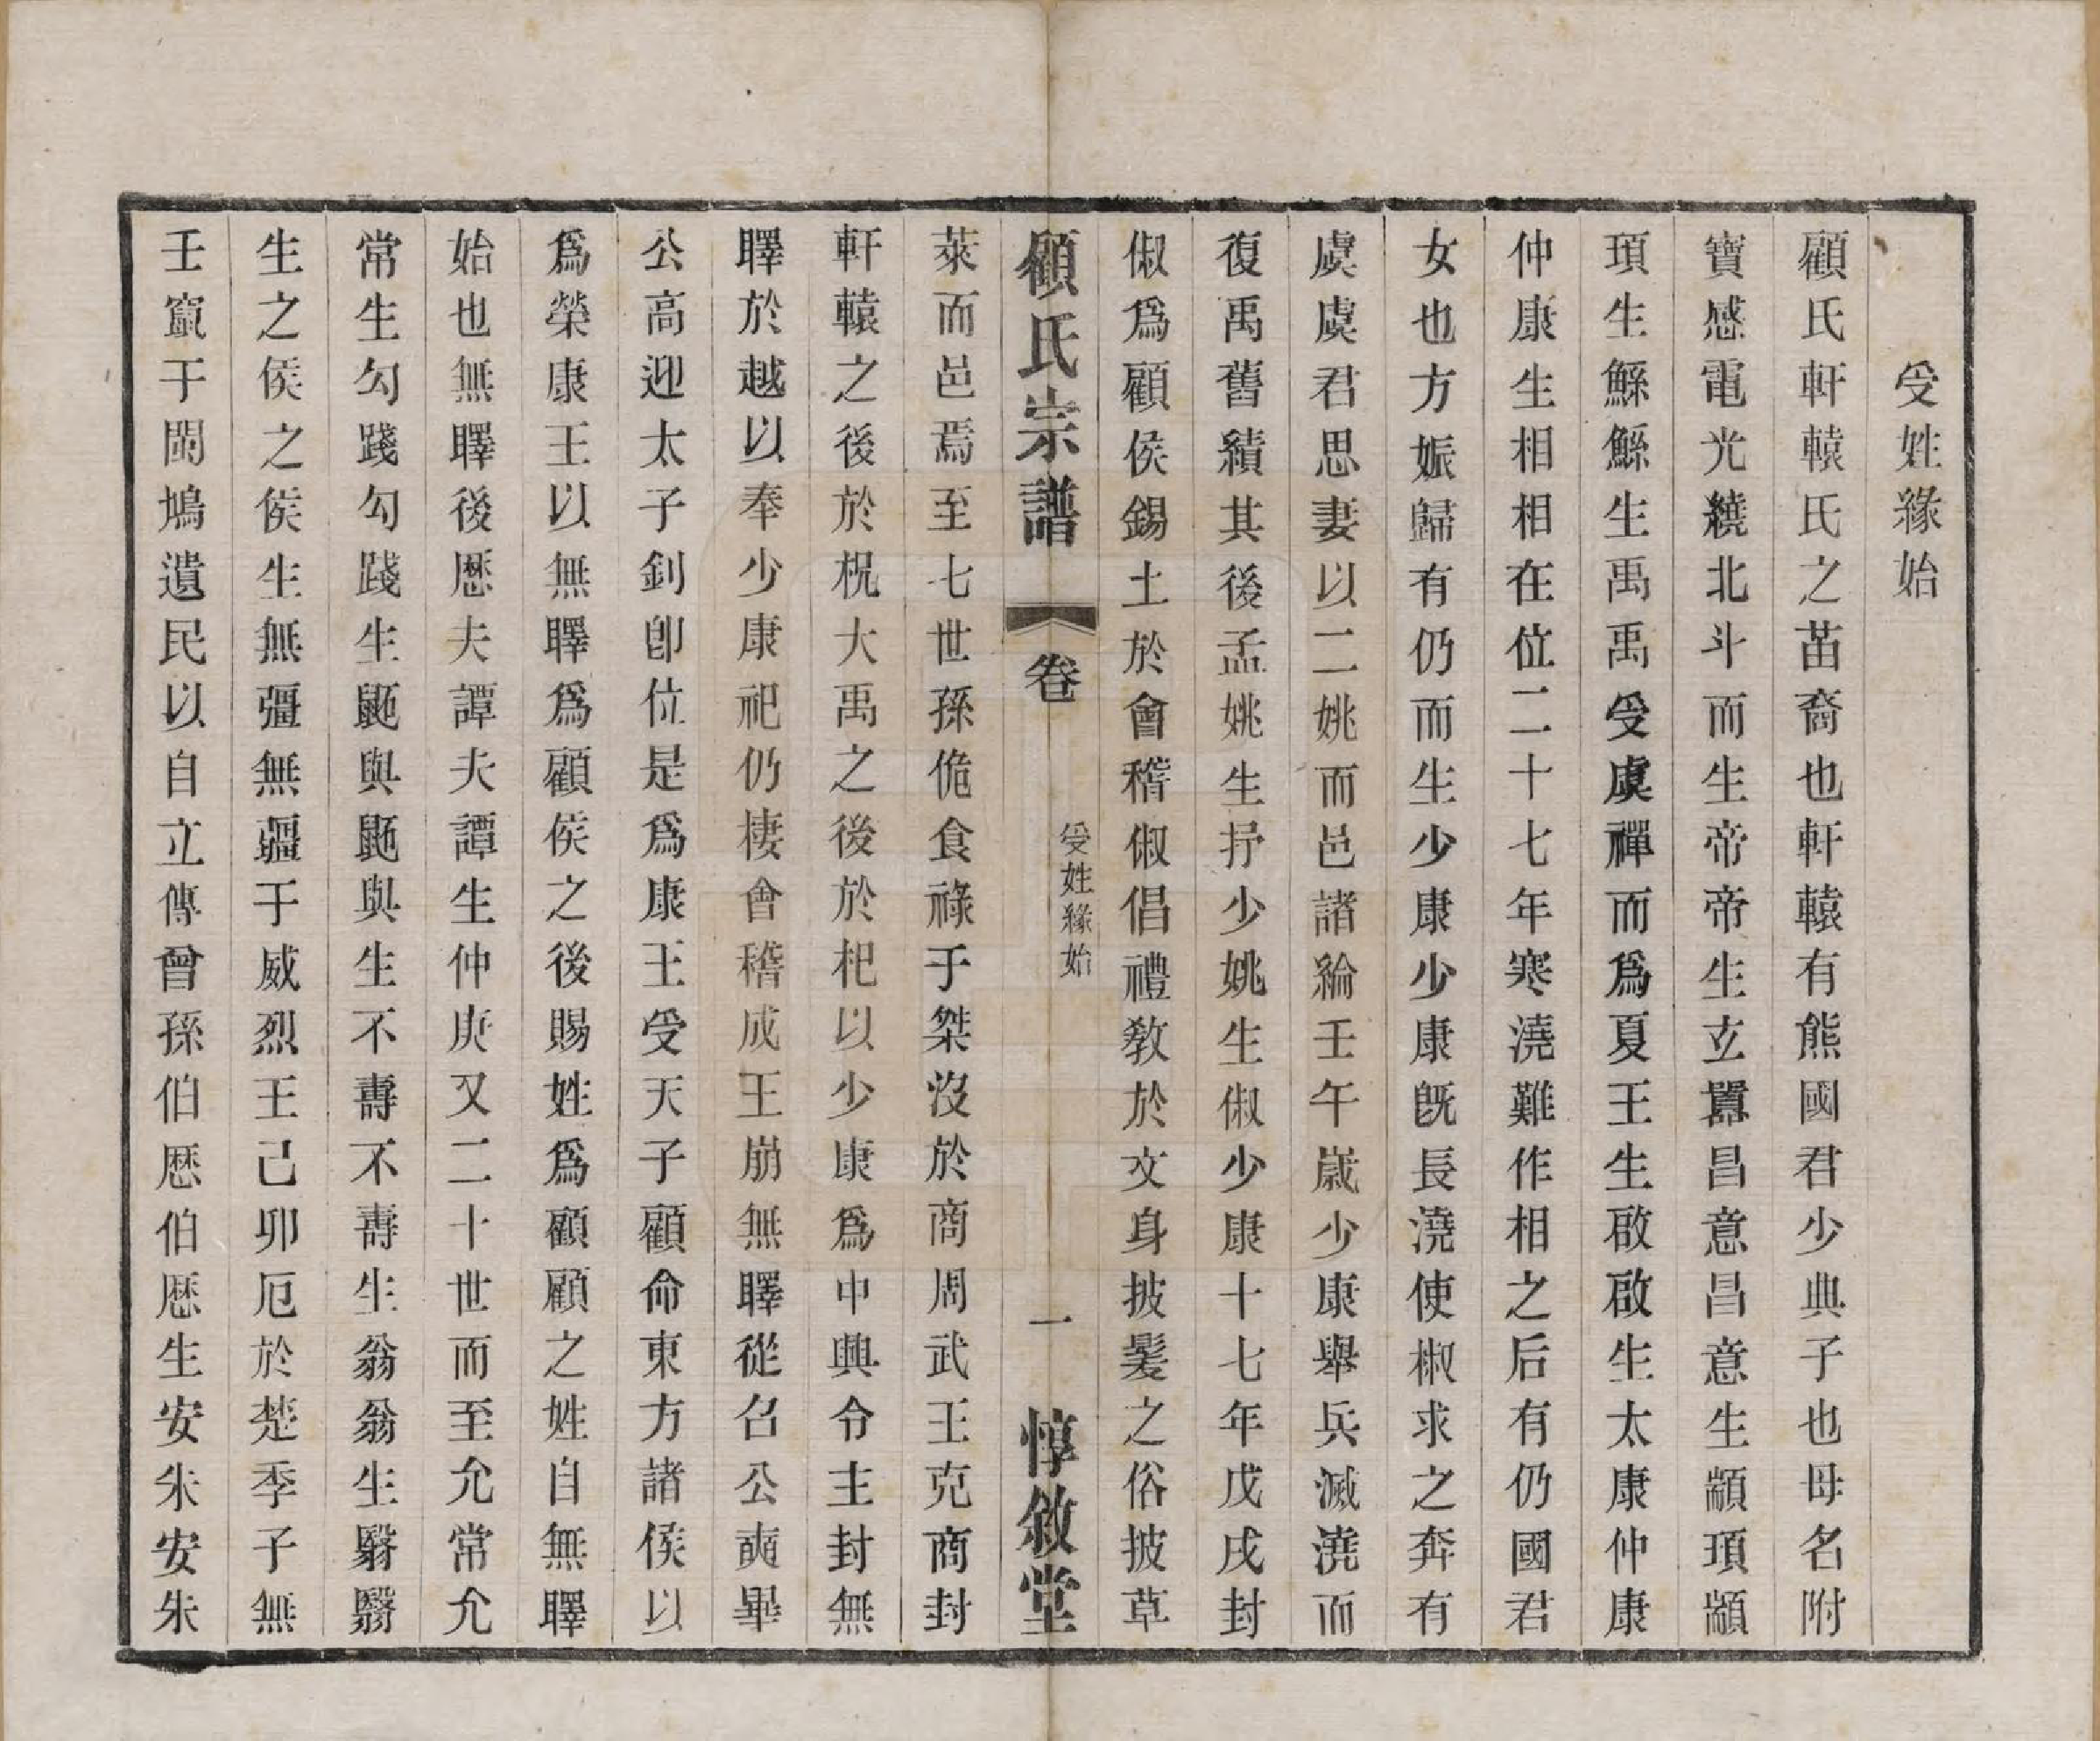 受姓緣始
顧氏軒轅氏之苗裔也軒轅有熊國君少典子也母名附
寶感電光繞北斗而生帝帝生玄囂昌意昌意生顓頊顓
頊生鯀鯀生禹禹受虞禪而爲夏王生啟啟生太康仲康
仲康生相相在位二十七年寒澆難作相之后有仍國君
女也方娠歸有仍而生少康少康旣長澆使椒求之奔有
虞虞君思妻以二姚而邑諸綸壬午嵗少康舉兵滅澆而
復禹舊績其後孟姚生抒少姚生俶少康十七年戊戌封
俶爲顧侯錫土於會稽俶倡禮敎於文身披髮之俗披草
顧氏宗譜 卷 受姓緣始 一 惇敘堂
萊而邑焉至七世孫佹食祿于桀沒於商周武王克商封
軒轅之後於柷大禹之後於杞以少康爲中興令主封無
睪於越以奉少康祀仍棲會稽成王崩無睪從召公奭畢
公高迎太子釗卽位是爲康王受天子顧命東方諸侯以
爲榮康王以無睪爲顧侯之後賜姓爲顧顧之姓自無睪
始也無睪後歷夫譚夫譚生仲庚又二十世而至允常允
常生勾踐勾踐生鼫與鼫與生不壽不壽生翁翁生翳翳
生之侯之侯生無彊無疆于威烈王己卯厄於楚季子無
壬竄于閩鳩遺民以自立傳曾孫伯歷伯歷生安朱安朱